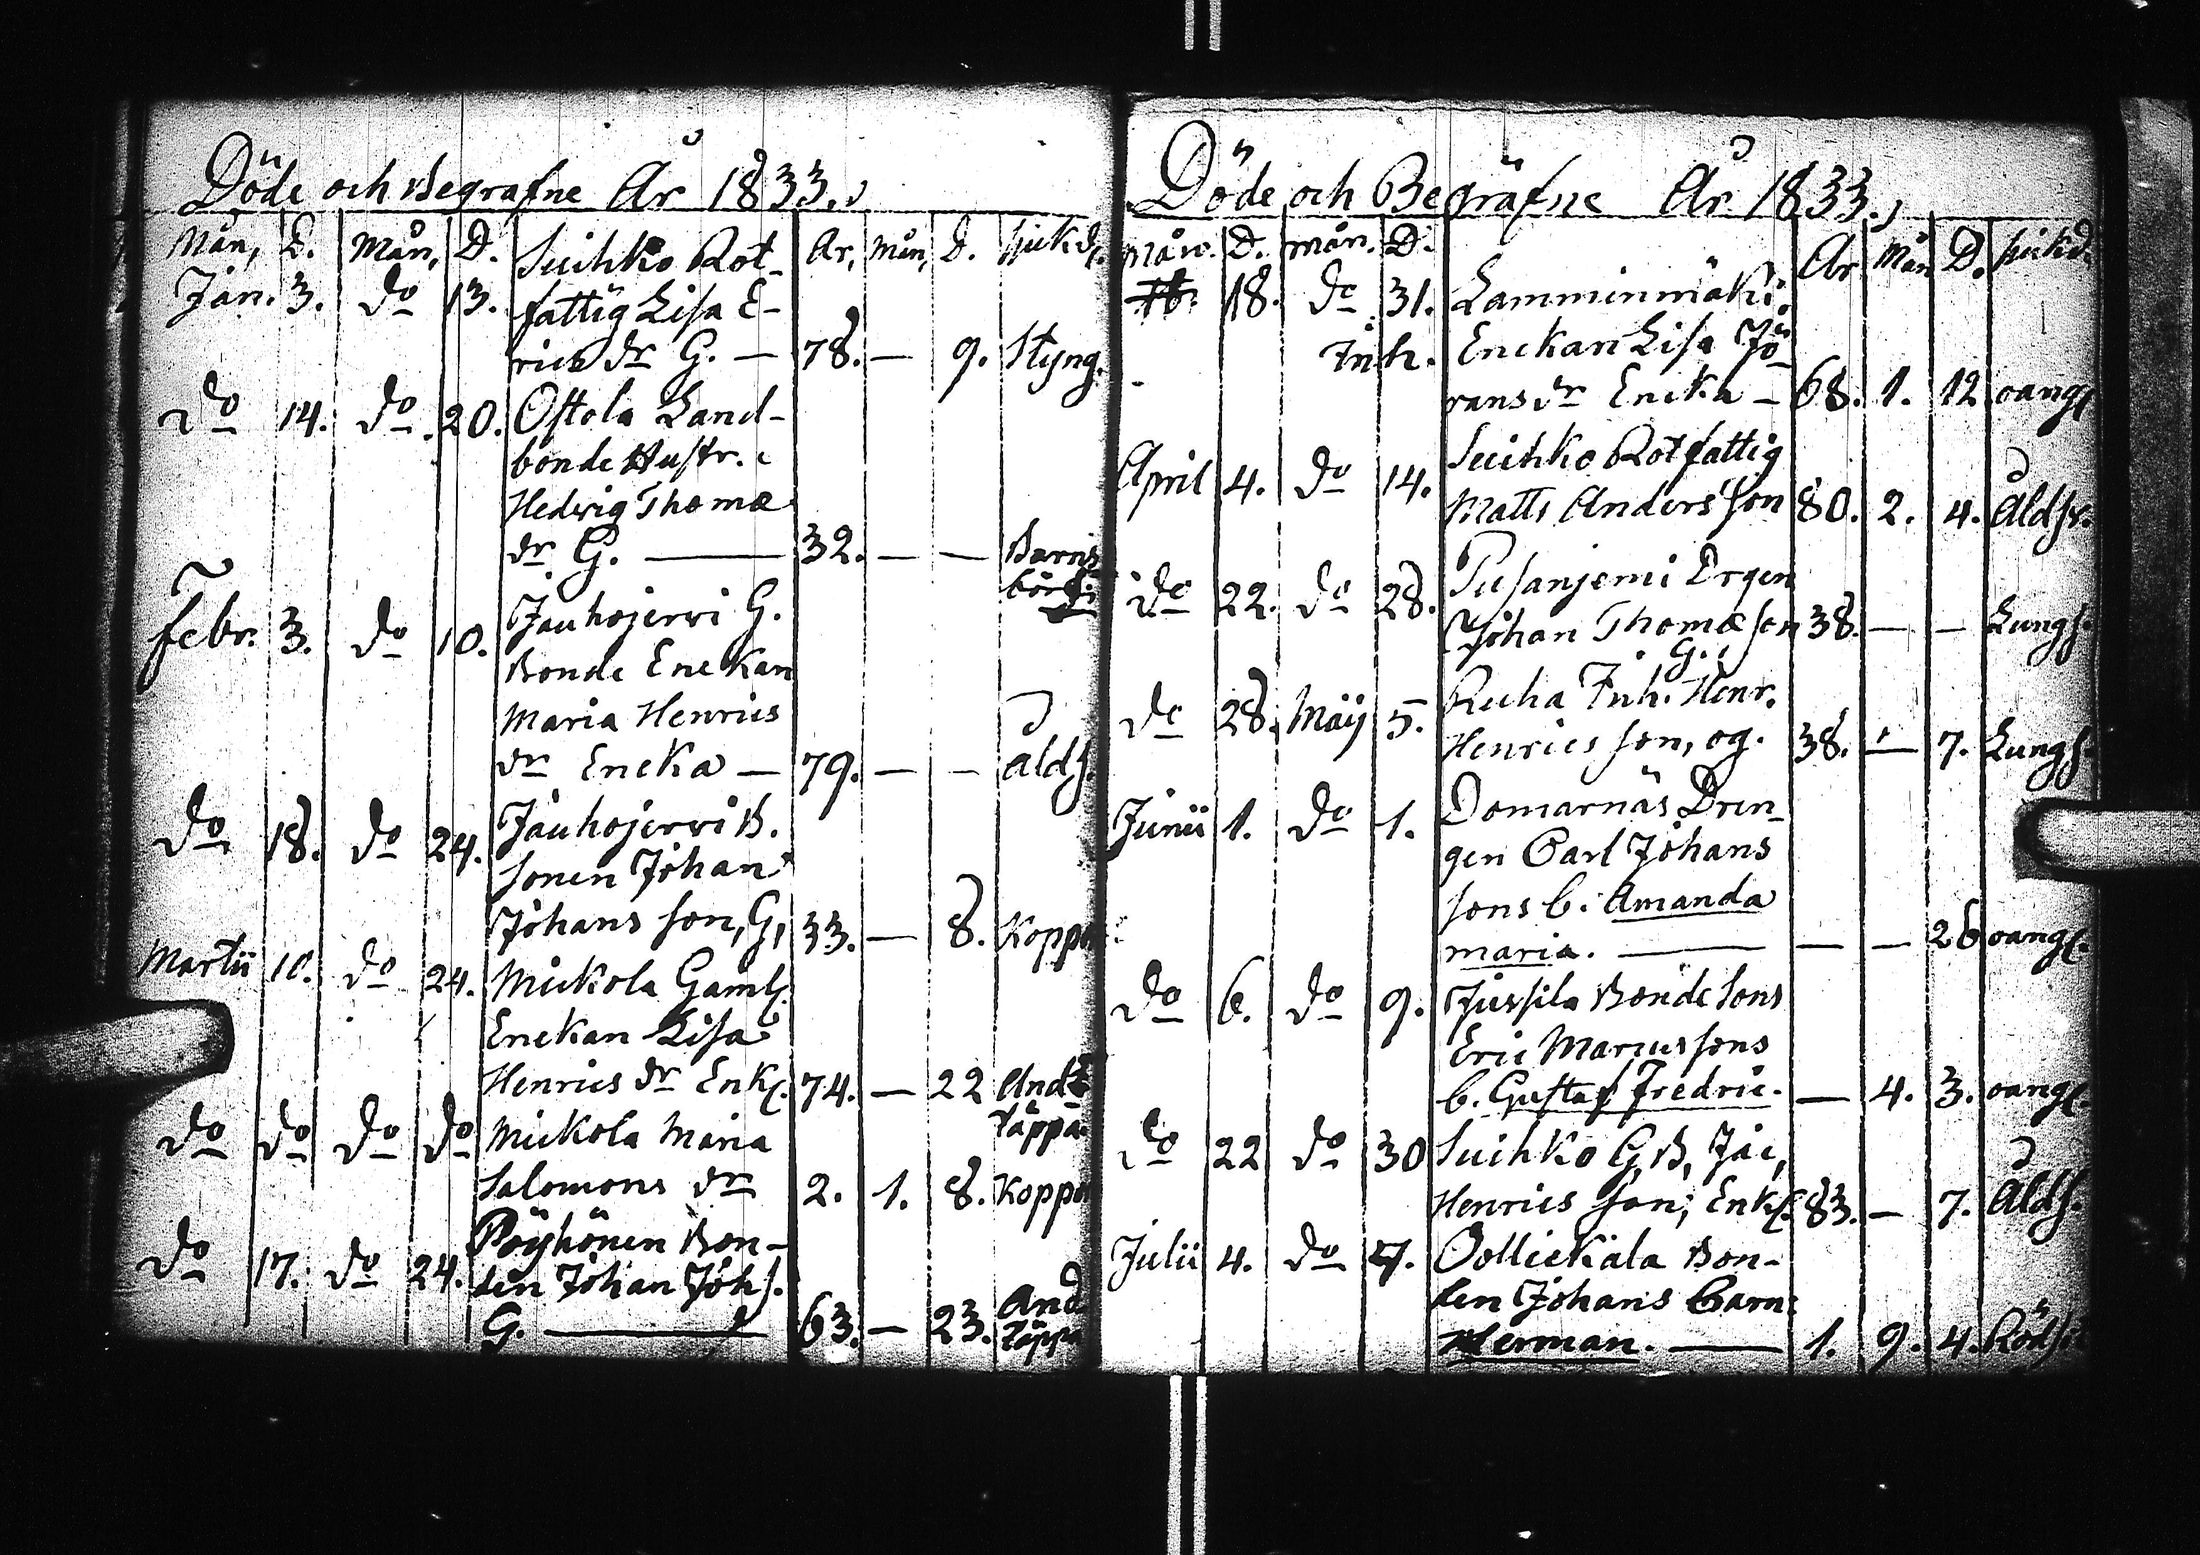 Döde och Begrafne År 1833.
Mån, D. Mån, D. Suihko Rot- År, Mån, D. sjukd.
Jan. 3. do 13. fattig Lisa E-
rics dr G. — 78. — 9. Styng.
do 14. do 20. Ostola Land-
bonde Hustr.
Hedvig Thomæ
dr G. — 32. — — Barns
börd
Febr. 3. do 10. Jauhojervi G.
Bonde Enckan
Maria Henrics
dr Encka — 79. — — ålds.
do 18. do 24. Jauhojervi B.
sonen Johan
Johans son, G, 33. — 8. Koppor
Martii 10. do 24. Mickola Gaml.
Enckan Lisa
Henrics dr Enk. 74. — 22 Andt
täppa
do do do do Mickola Maria
Salomons dr 2. 1. 8. Koppor
do 17. do 24. Pöyhönen Bon-
den Johan Joh s.
G. — 63. — 23. And
täppa
Döde och Begräfne År 1833.
Mån. D. Mån. D. År Mån D. sjukd.
18. do 31. Lamminmäki
Inh. Enckan Lisa Jö-
rans dr Encka — 68. 1. 12 oangf
April 4. do 14. Suihko Rotfattig
Matts Anders son 80. 2. 4. Åldsr.
do 22. do 28. Pusanjemi Drgen
Johan Thomæ son 38. — — Lungs.
G.
do 28. Maij 5. Ruha Inh. Henr.
Henrics son, og. 38. — 7. Lungs.
Junii 1. do 1. Domarnäs Dren-
gen Carl Johans
sons b. Amanda
maria. — — — 26 oangf.
do 6. do 9. Jussila Bonde Sons
Eric Marcussons
b. Gustaf Fredric. — 4. 3. oangf.
do 22 do 30 Suihko G, B, Jac,
Henrics son, Enk. 83. — 7. Ålds.
Julii 4. do 7. Ollickala Bon-
den Johans Barn:
Herman. — 1. 9. 4. Röds